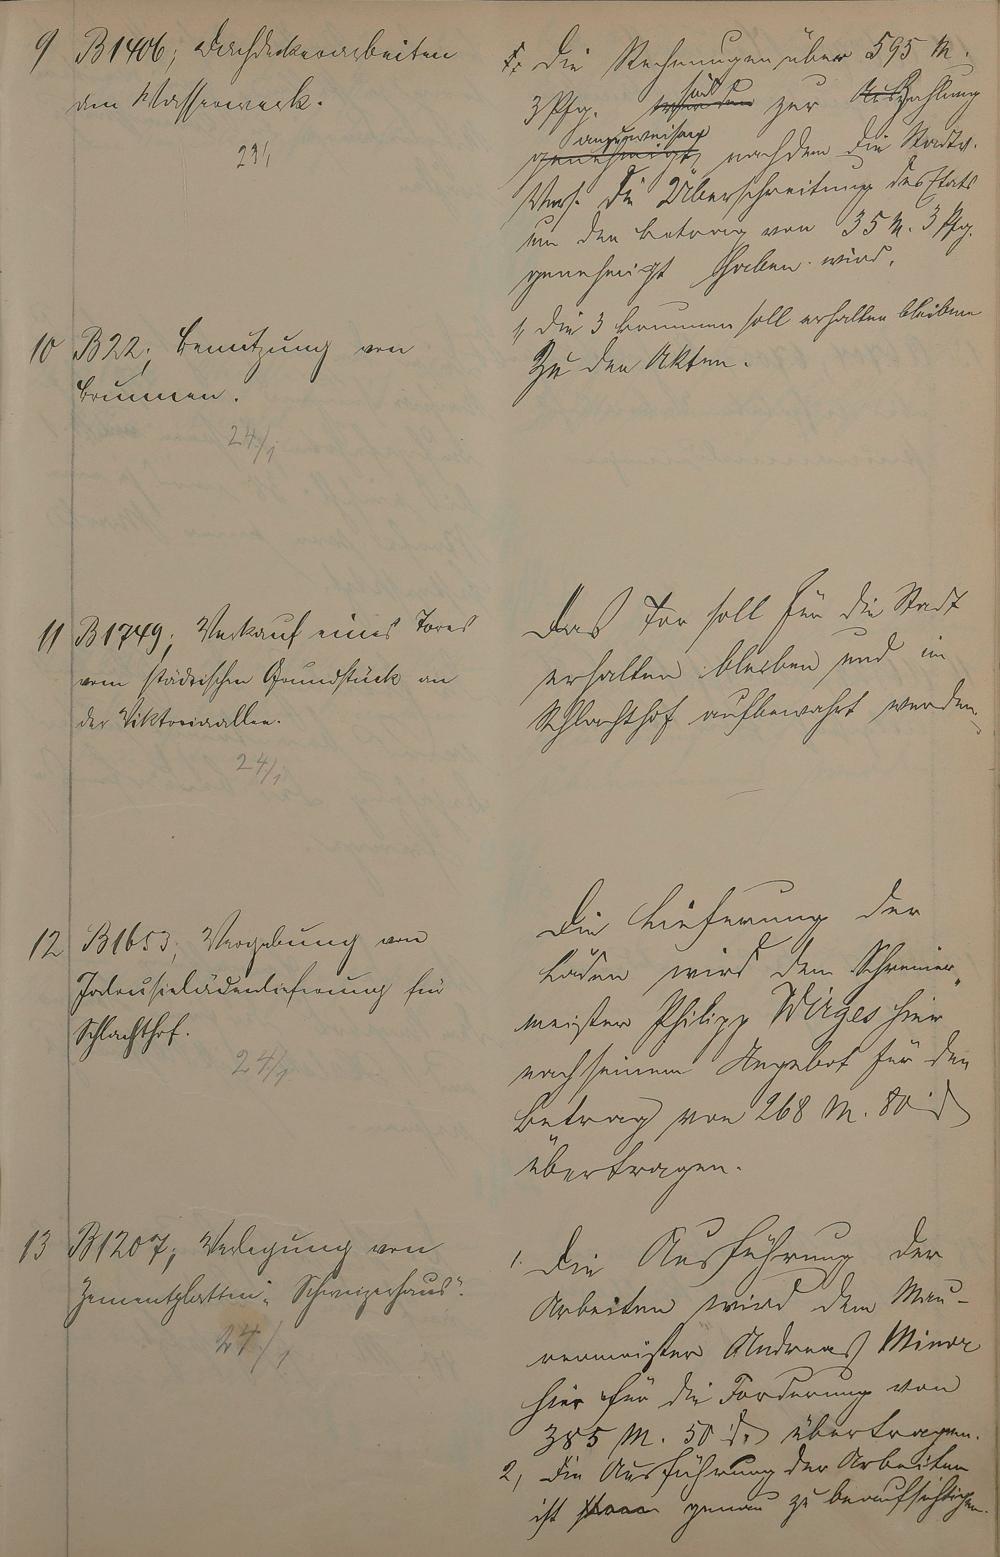 9 B1406; Dachdeckerarbeiten
am Wasserwerk.
23/1
Die Rechnungen über 595 M.
3 Pfg. werden sind zur Auszahlung
genehmigt, anzuweisen nachdem die Stadtv.
Vers. die Überschreitung des Etats
um den Betrag von 35 M. 3 Pfg.
genehmigt haben wird.
10 B22; Benutzung von
Brunnen.
24/1
1, Die 3 Brunnen soll erhalten bleiben
Zu den Akten.
11 B1749; Verkauf eines Tores
vom städtischen Grundstück an
der Viktoriaallee.
24/1
Das Tor soll für die Stadt
erhalten bleiben und im
Schlachthof aufbewahrt werden.
12 B1653; Vergebung von
Jalousielädenlieferung für
Schlachthof.
24/1
Die Lieferung der
Läden wird dem Schreiner-
meister Philipp Wirges hier
nach seinem Angebot für den
Betrag von 268 M. 80 ₰
übertragen.
13 B1207; Verlegung von
Zementplatten „Schweizerhaus“.
24/1
1. Die Ausführung der
Arbeiten wird dem Mau-
rermeister Andreas Minor
hier für die Forderung von
385 M. 50 ₰ übertragen.
2, Die Ausführung der Arbeiten
ist genau zu beaufsichtigen.